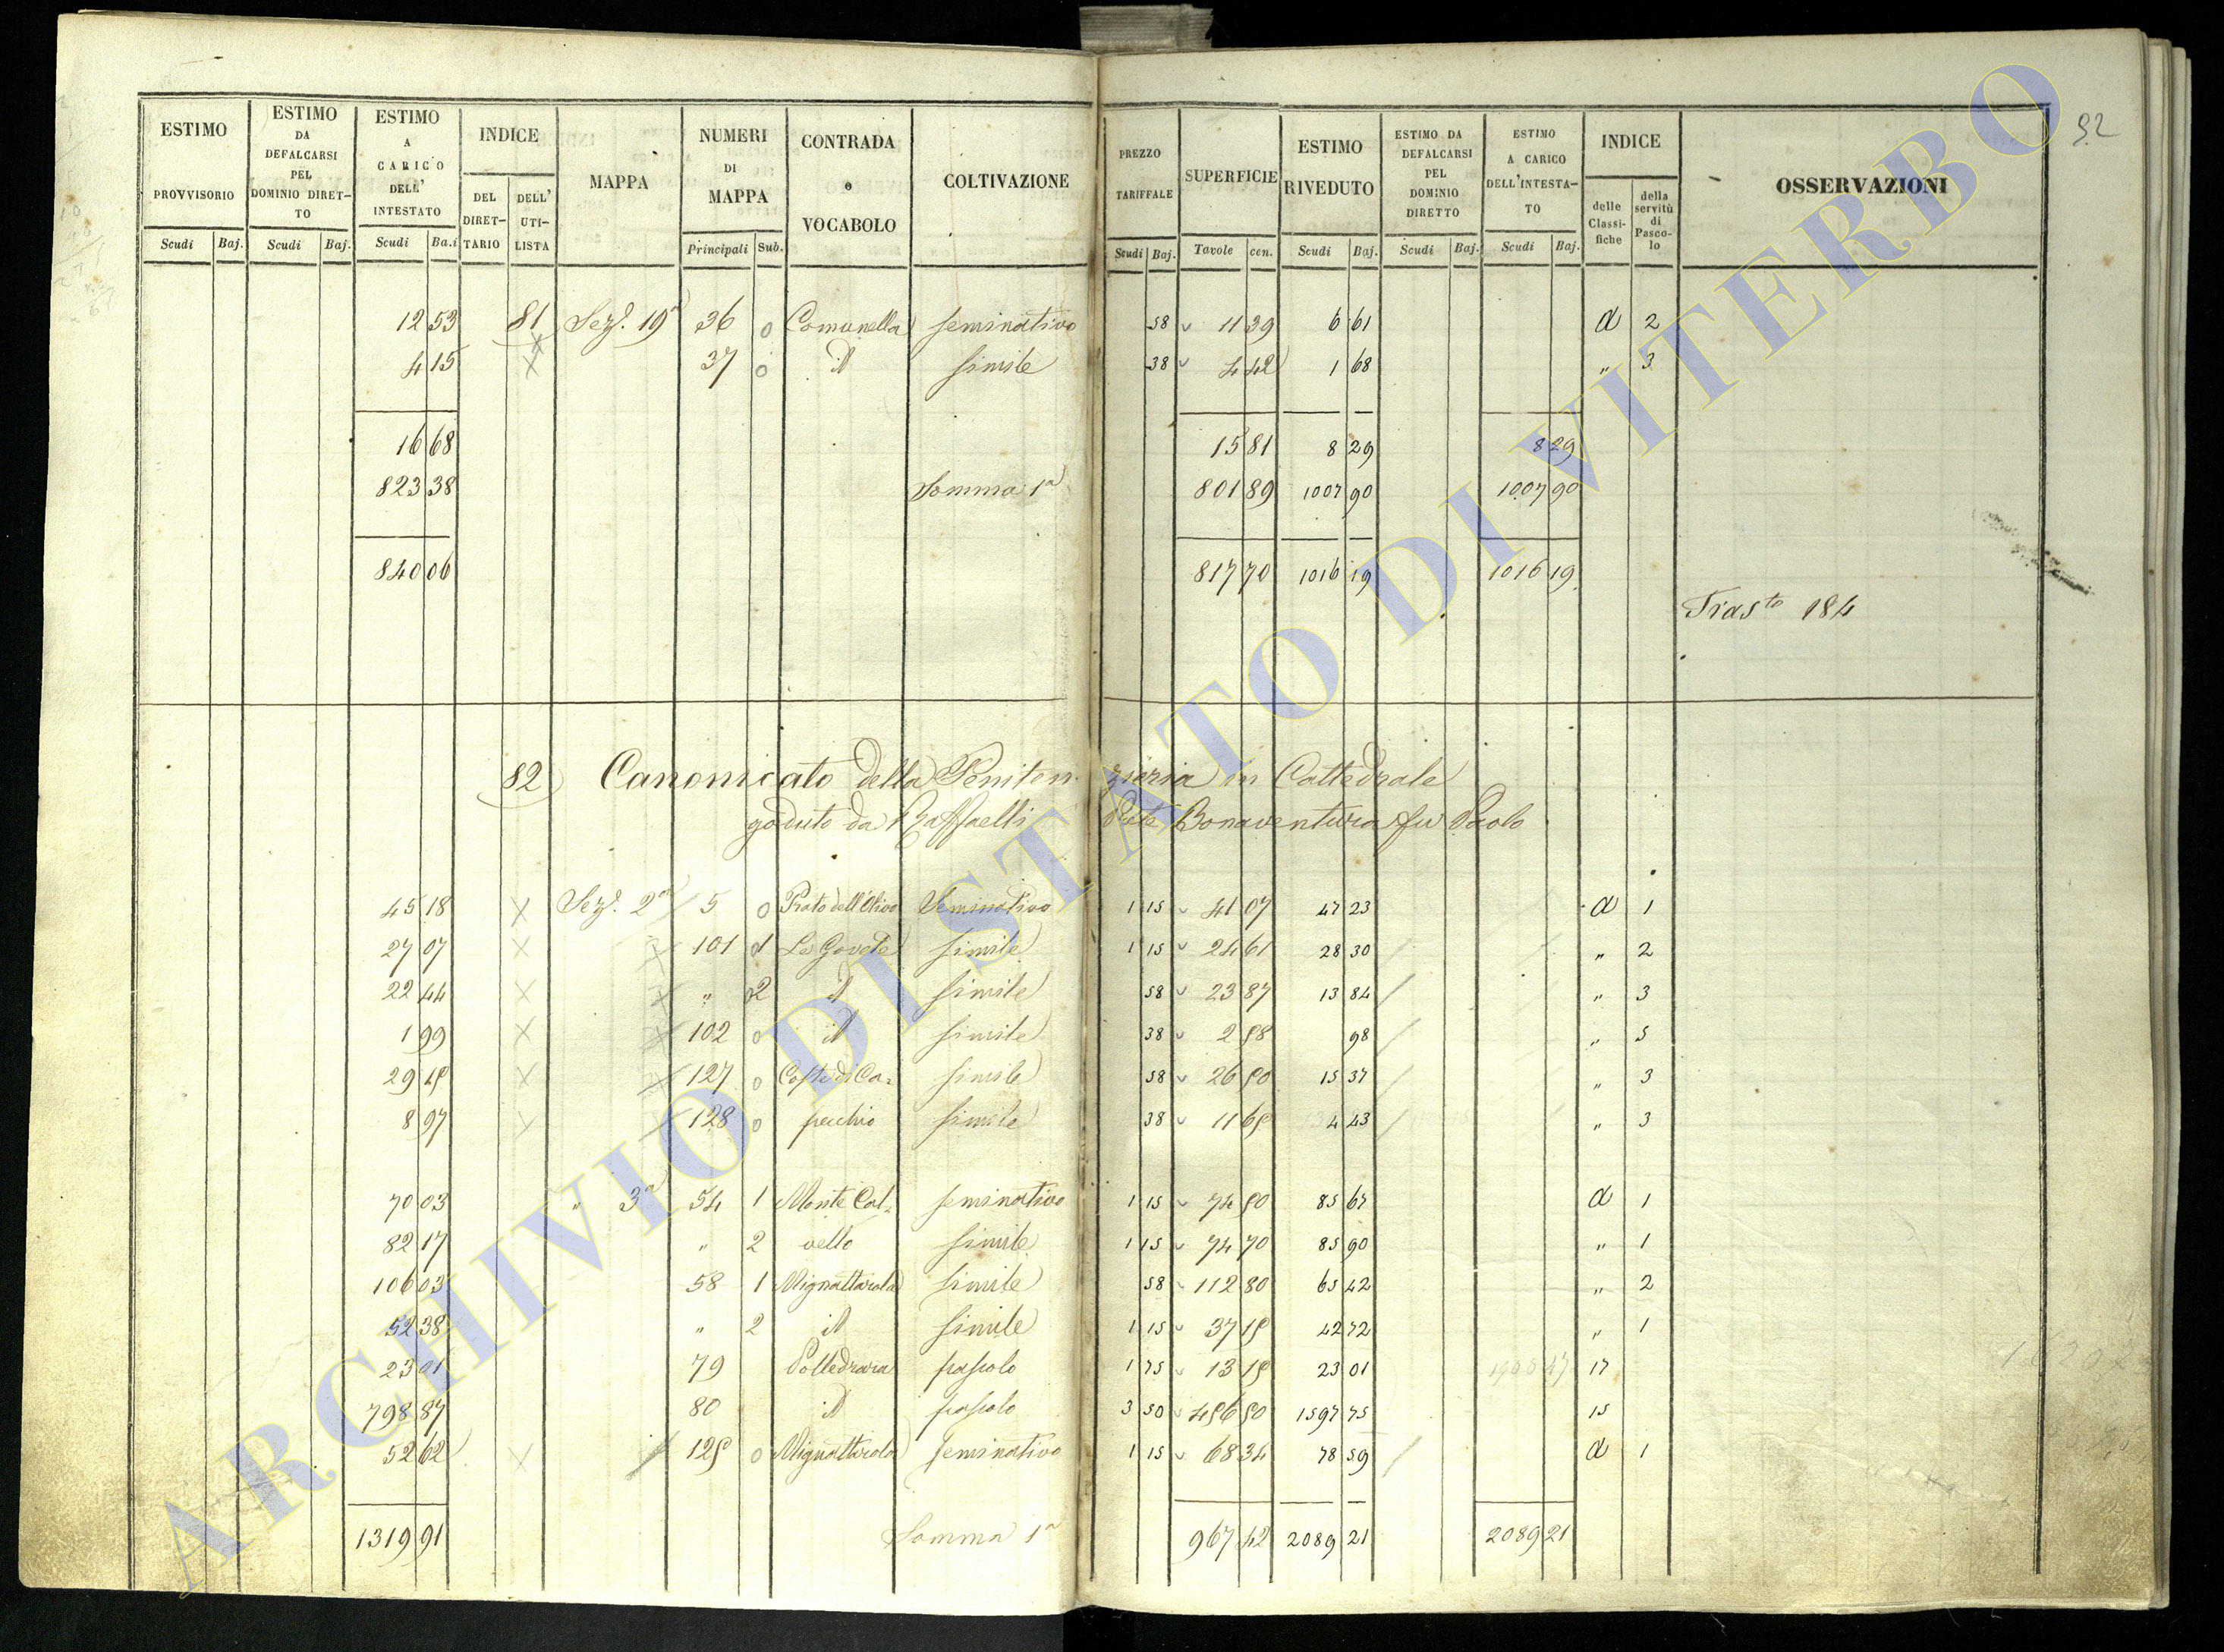 92
ESTIMO PROVVISORIO Scudi Baj.
ESTIMO DA DEFALCARSI PEL DOMINIO DIRET-TO Scudi Baj.
ESTIMO A CARICO DELL' INTESTATO Scudi Ba.i
INDICE DEL DIRET-TARIO DELL' UTI-LISTA
MAPPA
NUMERI DI MAPPA Principali Sub.
CONTRADA o VOCABOLO
COLTIVAZIONE
PREZZO TARIFFALE Scudi Baj.
SUPERFICIE Tavole cen.
ESTIMO RIVEDUTO Scudi Baj.
ESTIMO DA DEFALCARSI PEL DOMINIO DIRETTO Scudi Baj.
ESTIMO A CARICO DELL'INTESTA-TO Scudi Baj.
INDICE delle Classi-fiche della servitù di Pasco-lo
OSSERVAZIONI
12 53 81 Sez.e 19a 36 0 Comunella seminativo 58 11 39 6 61 a 2
4 15 37 0 id simile 38 4 42 1 68 " 3
16 68 15 81 8 29 8 29
823 38 Somma 1a 801 89 1007 90 1007 90
840 06 817 70 1016 19 1016 19
Trasto 184
82 Canonicato della Peniten zieria in Cattedrale
goduto da Raffaelli Prete Bonaventura fu Paolo
45 18 Sez.e 2a 5 0 Prato dell'Olivo Seminativo 1 15 41 07 47 23 a 1
27 07 101 1 simile 1 15 24 61 28 30 " 2
22 44 " 2 id simile 58 23 87 13 84 " 3
1 99 102 0 id simile 38 2 58 98 " 5
29 15 127 0 Coste di Ca= simile 58 26 50 15 37 " 3
8 97 128 0 pecchio simile 38 11 65 4 43 " 3
70 03 " 3a 54 1 Monte Cal= seminativo 1 15 74 50 85 67 a 1
82 17 " 2 vello simile 1 15 74 70 85 90 " 1
106 03 58 1 Mignattarola simile 58 112 80 65 42 " 2
52 38 " 2 id simile 1 15 37 15 42 72 " 1
23 01 79 Polledrara pascolo 1 75 13 15 23 01 17
798 87 80 id pascolo 3 50 456 50 1597 75 15
52 62 125 0 Mignattarola seminativo 1 15 68 34 78 59 a 1
1319 91 Somma 1a 967 42 2089 21 2089 21
ARCHIVIO DI STATO DI VITERBO